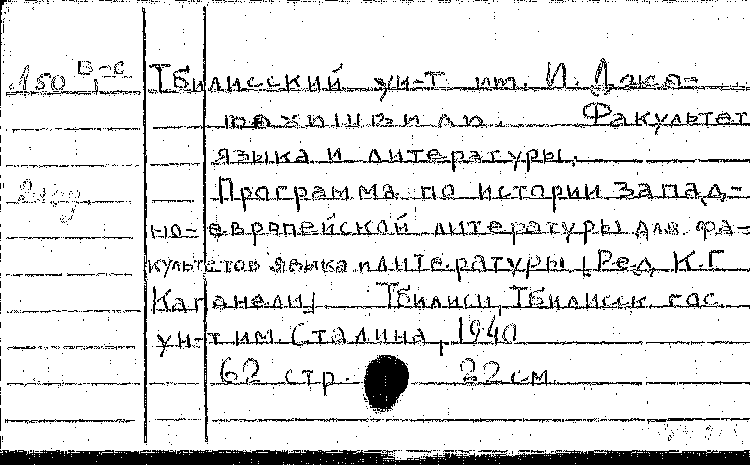 150 В-с Тбилисский ун-т им. И. Джа-
вахишвили. Факультет
языка и литературы.
Программа по истории запад-
но-европейской литературы для фа-
культетов языка и литературы [Ред. К.Г.
Каганели] Тбилиси, Тбилисск. гос.
ун-т им. Сталина, 1940
62 стр. 22 см.